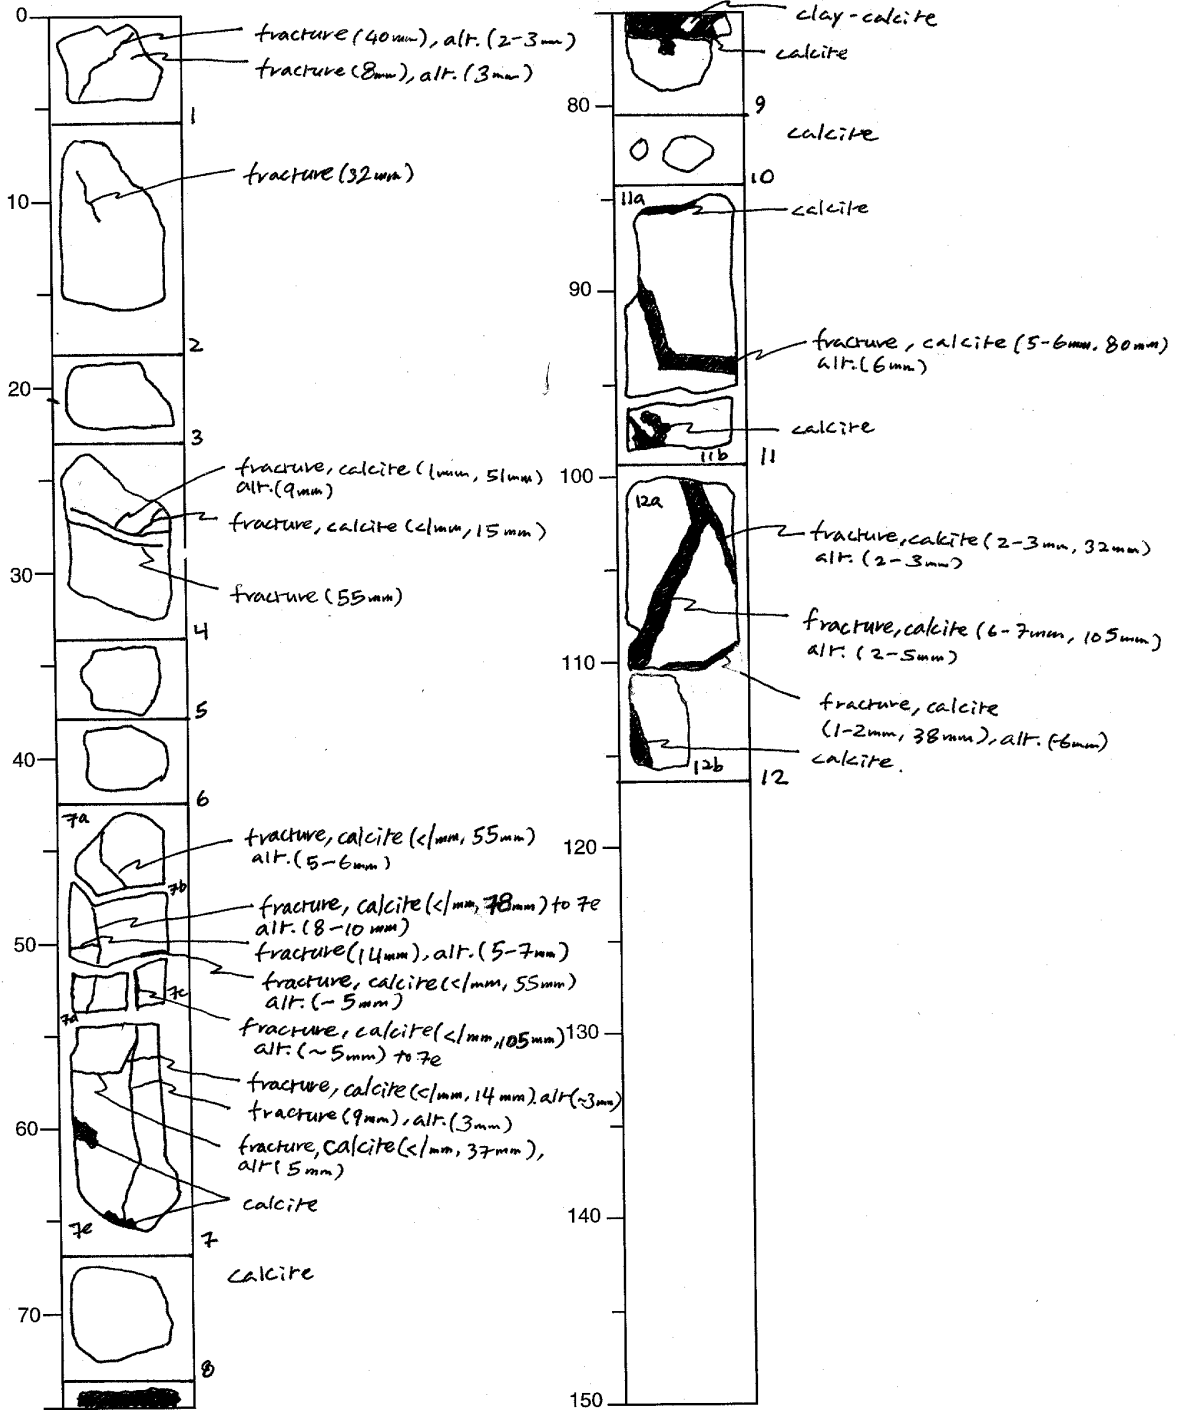 0
fracture (40mm), alt. (2-3mm)
fracture (8mm), alt. (3mm)
1
fracture (32mm)
10
2
20
3
fracture, calcite (1mm, 51mm)
alt.(9mm)
fracture, calcite (<1mm, 15mm)
30
fracture (55mm)
4
5
40
6
7a
fracture, calcite (<1mm, 55mm)
alt.(5-6mm)
7b
fracture, calcite (<1mm, 78mm) to 7e
alt. (8-10 mm)
50
fracture(14mm), alt.(5-7mm)
fracture, calcite (<1mm, 55mm)
alt. (~5mm)
7c
7d
fracture, calcite (<1mm, 105mm)
alt. (~5mm) to 7e
fracture, calcite (<1mm, 14mm). alt(~3mm)
fracture (9mm), alt.(3mm)
60
fracture, calcite (<1mm, 37mm),
alt(5mm)
calcite
7e
7
calcite
70
8
clay-calcite
calcite
80
9
calcite
10
11a
calcite
90
fracture, calcite (5-6mm, 80mm)
alt.(6mm)
calcite
11b
11
100
12a
fracture, calcite (2-3mm, 32mm)
alt. (2-3mm)
fracture, calcite (6-7mm, 105mm)
alt. (2-5mm)
110
fracture, calcite
(1-2mm, 38mm), alt. (~6mm)
calcite.
12b
12
120
130
140
150